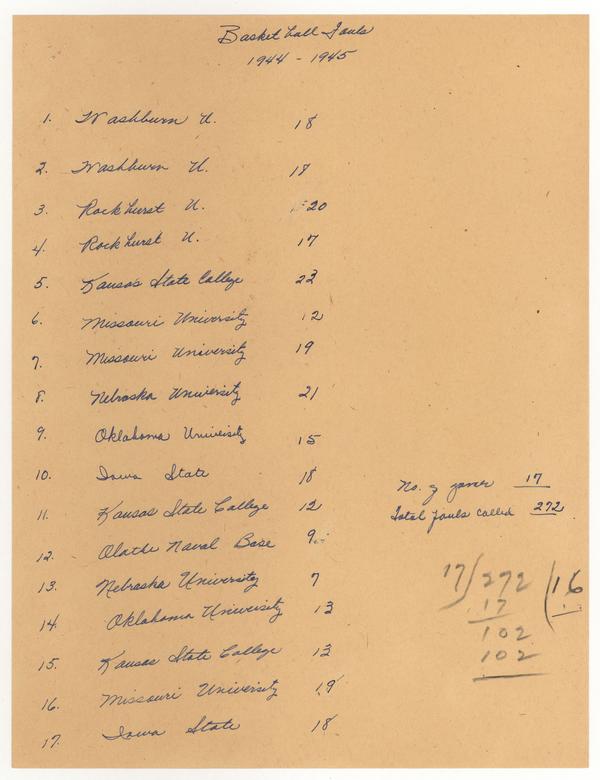 Basket ball Fouls
1944 - 1945
1. Washburn U. 18
2. Washburn U. 18
3. Rockhurst U. 20
4. Rockhurst U. 17
5. Kansas State College 23
6. Missouri University 12
7. Missouri University 19
8. Nebraska University 21
9. Oklahoma University 15
10. Iowa State 18
11. Kansas State College 12
12. Olathe Naval Base 9
13. Nebraska University 7
14. Oklahoma University 13
15. Kansas State College 13
16. Missouri University 19
17. Iowa State 18
No. of games 17
Total fouls called 272
17/272(16
17
102
102